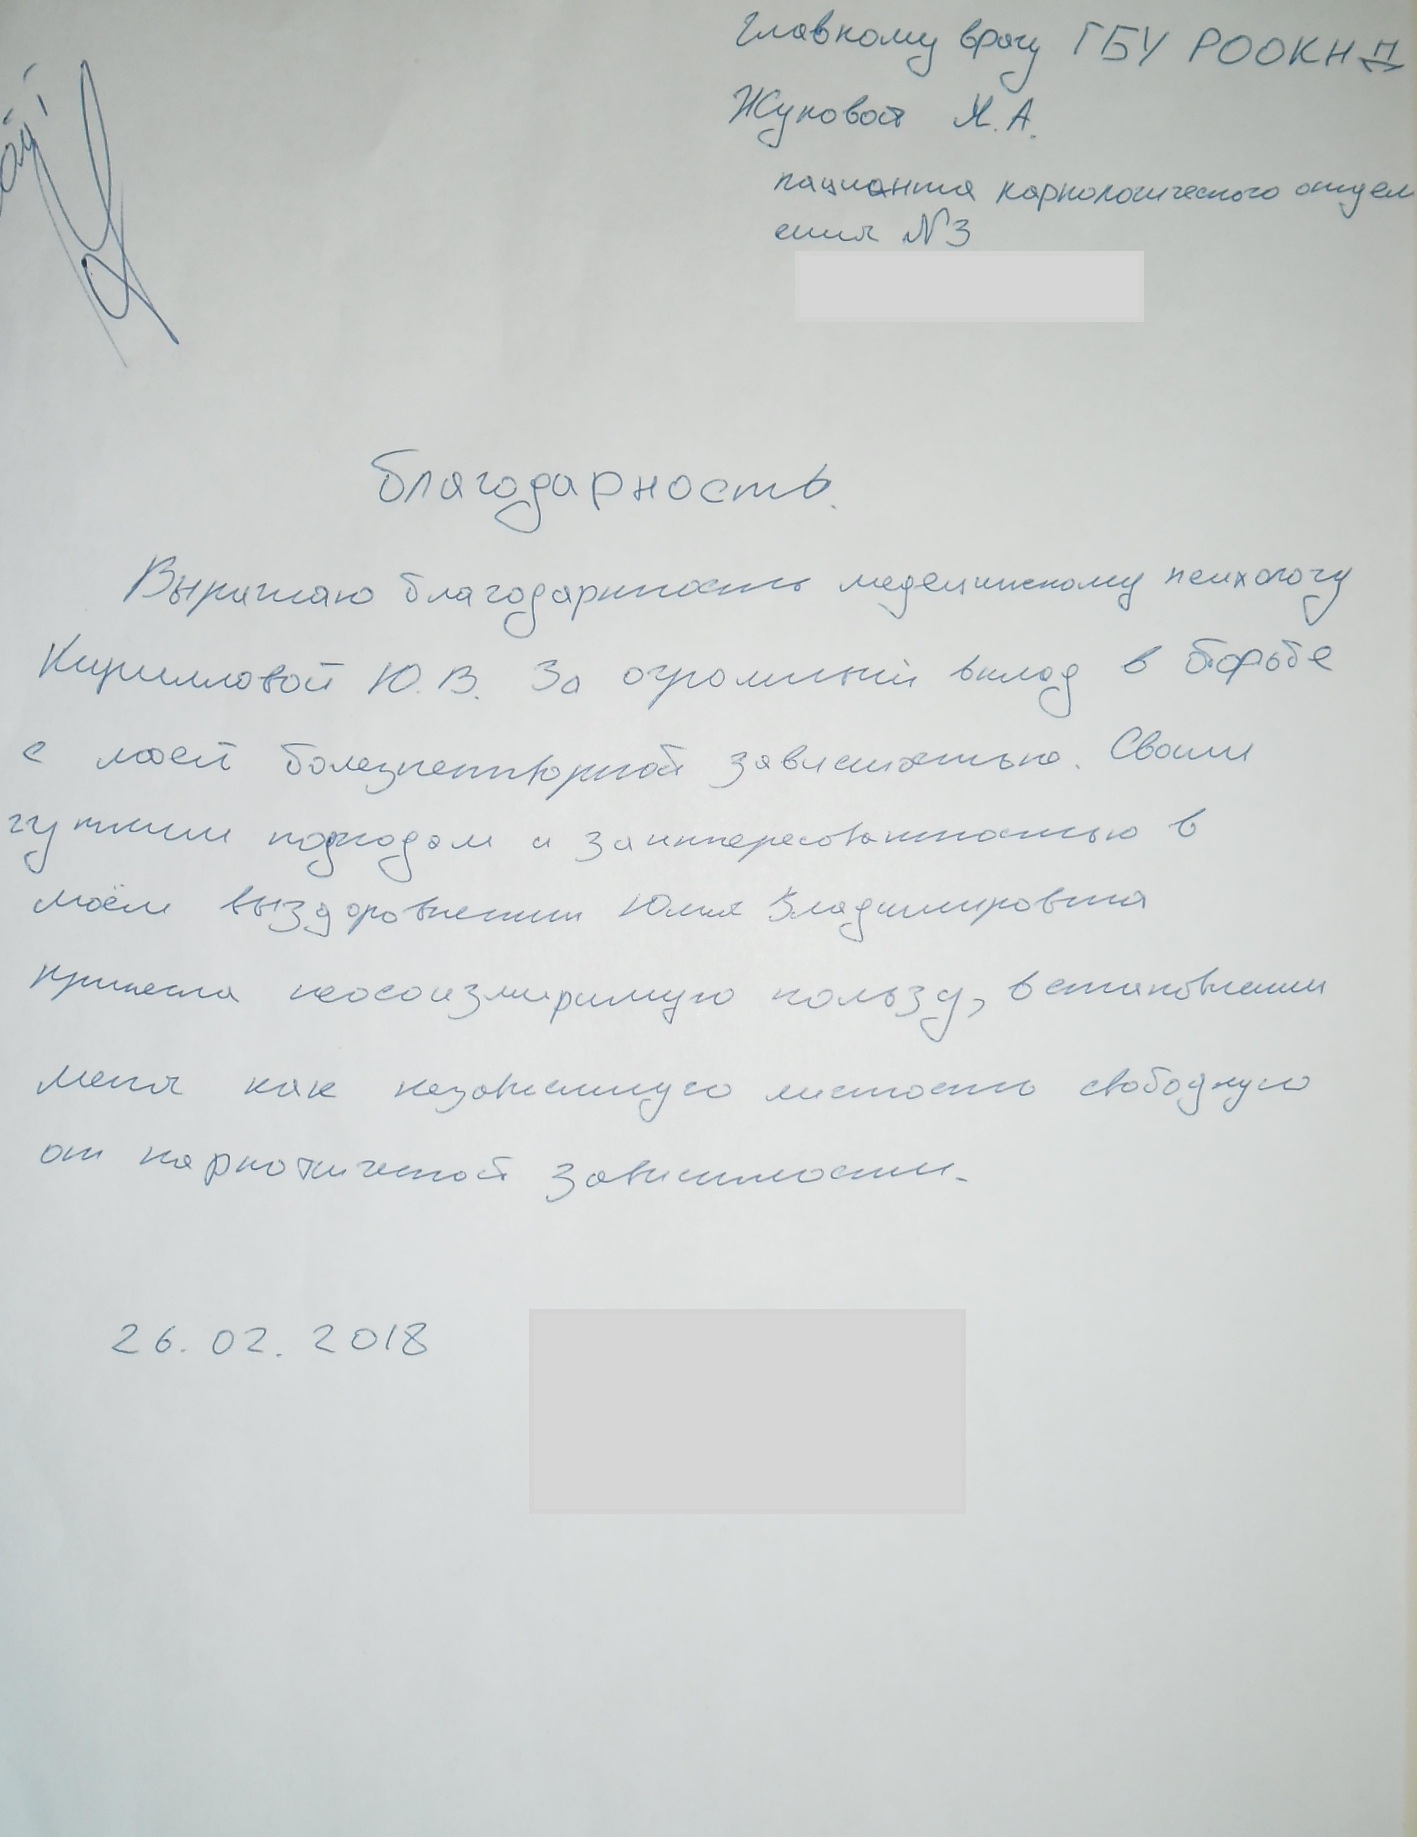 Главному врачу ГБУ РО ОКНД
Жуковой Я. А.
пациента наркологического отдел
ения №3
Благодарность.
Выражаю благодарность медецинскому психологу
Кирилловой Ю. В. За огромный вклад в борьбе
с моей болезнетворной зависимостью. Своим
чутким подходом и заинтересованностью в
моём выздоровлении Юлия Владимировна
принесла неосоизмиримую пользу, в становлении
меня как независимую личность свободную
от наркотической зависимости.
26.02.2018